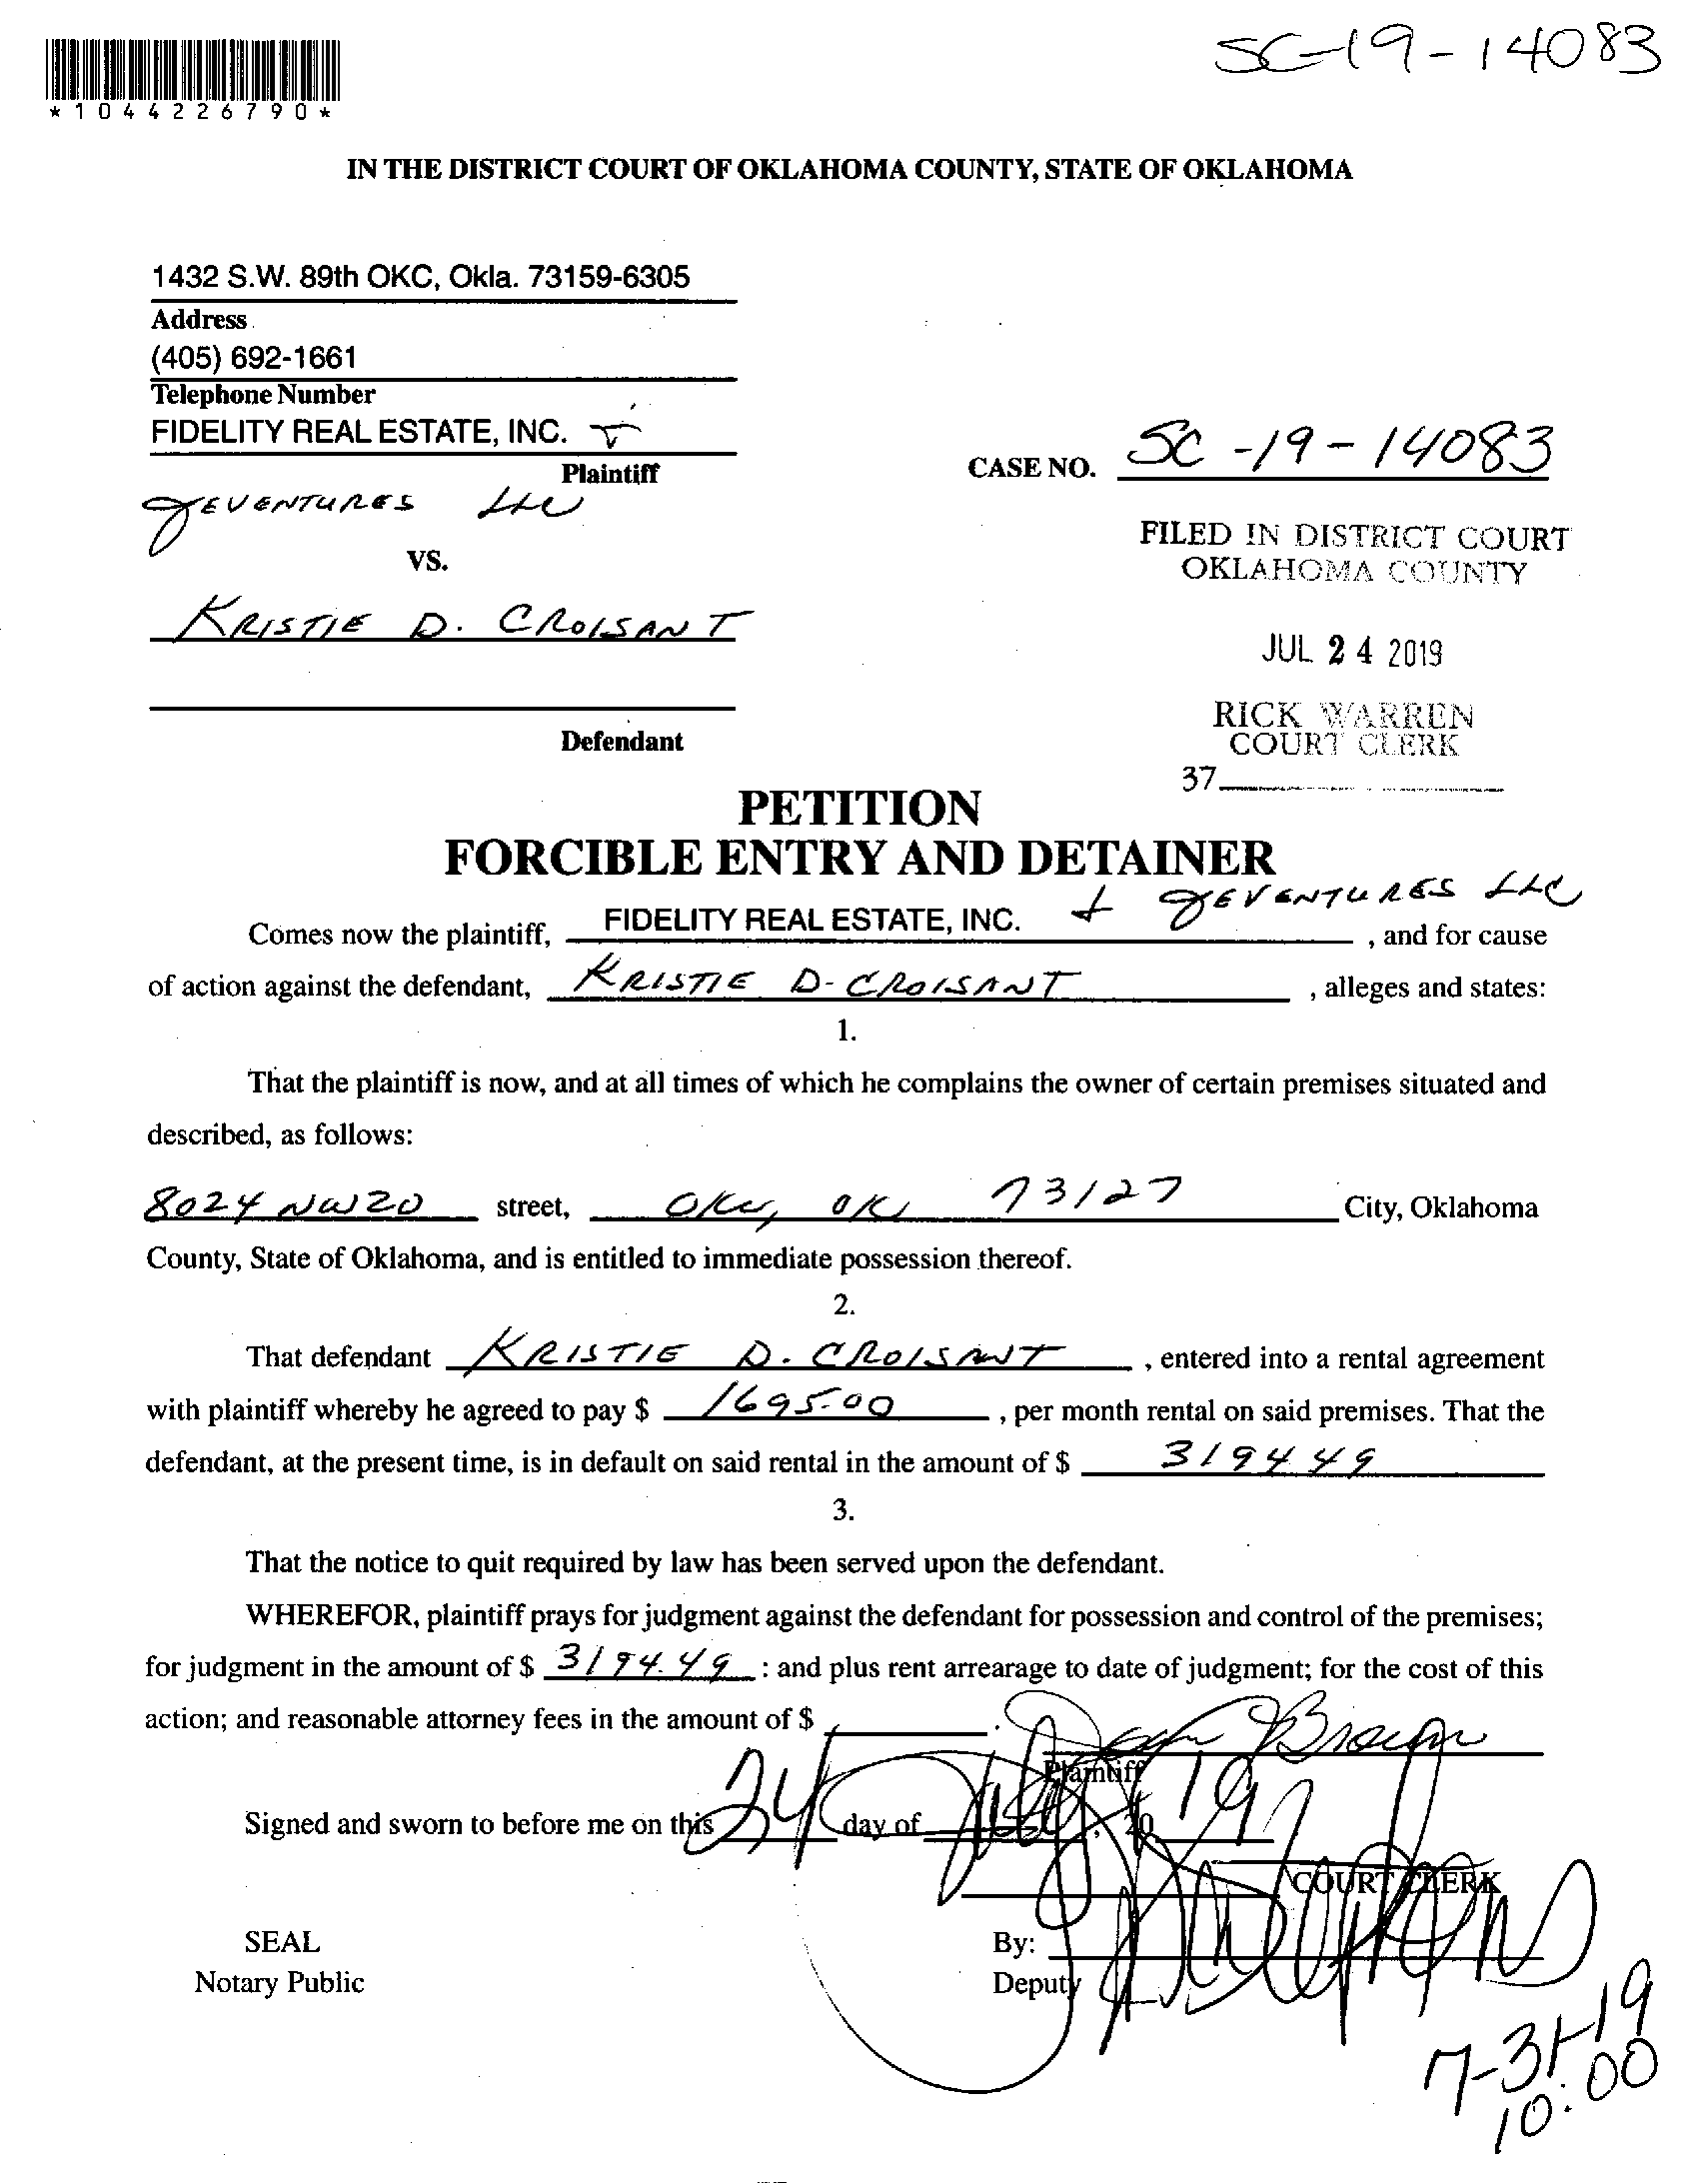 SC-19-14083
*1044226790*
IN THE DISTRICT COURT OF OKLAHOMA COUNTY, STATE OF OKLAHOMA
1432 S.W. 89th OKC, Okla. 73159-6305
Address
(405) 692-1661
Telephone Number
FIDELITY REAL ESTATE, INC. +
Plaintiff
JEVENTURES LLC
CASE NO. SC-19-14083
VS.
FILED IN DISTRICT COURT
OKLAHOMA COUNTY
KRISTIE D. CROISANT
JUL 24 2019
Defendant
RICK WARREN
COURT CLERK
37
PETITION
FORCIBLE ENTRY AND DETAINER
Comes now the plaintiff, FIDELITY REAL ESTATE, INC. + JEVENTURES LLC, and for cause
of action against the defendant, KRISTIE D-CROISANT, alleges and states:
1.
That the plaintiff is now, and at all times of which he complains the owner of certain premises situated and
described, as follows:
8024 NW20 street, OKC, OK 73127 City, Oklahoma
County, State of Oklahoma, and is entitled to immediate possession thereof.
2.
That defendant KRISTIE D. CROISANT, entered into a rental agreement
with plaintiff whereby he agreed to pay $ 1695.00, per month rental on said premises. That the
defendant, at the present time, is in default on said rental in the amount of $ 3194 49
3.
That the notice to quit required by law has been served upon the defendant.
WHEREFOR, plaintiff prays for judgment against the defendant for possession and control of the premises;
for judgment in the amount of $ 3194.49: and plus rent arrearage to date of judgment; for the cost of this
action; and reasonable attorney fees in the amount of $ .
Plaintiff
Signed and sworn to before me on this 24 day of July, 20 19
COURT CLERK
SEAL
By:
Notary Public
Deputy
7-31-19
10:00